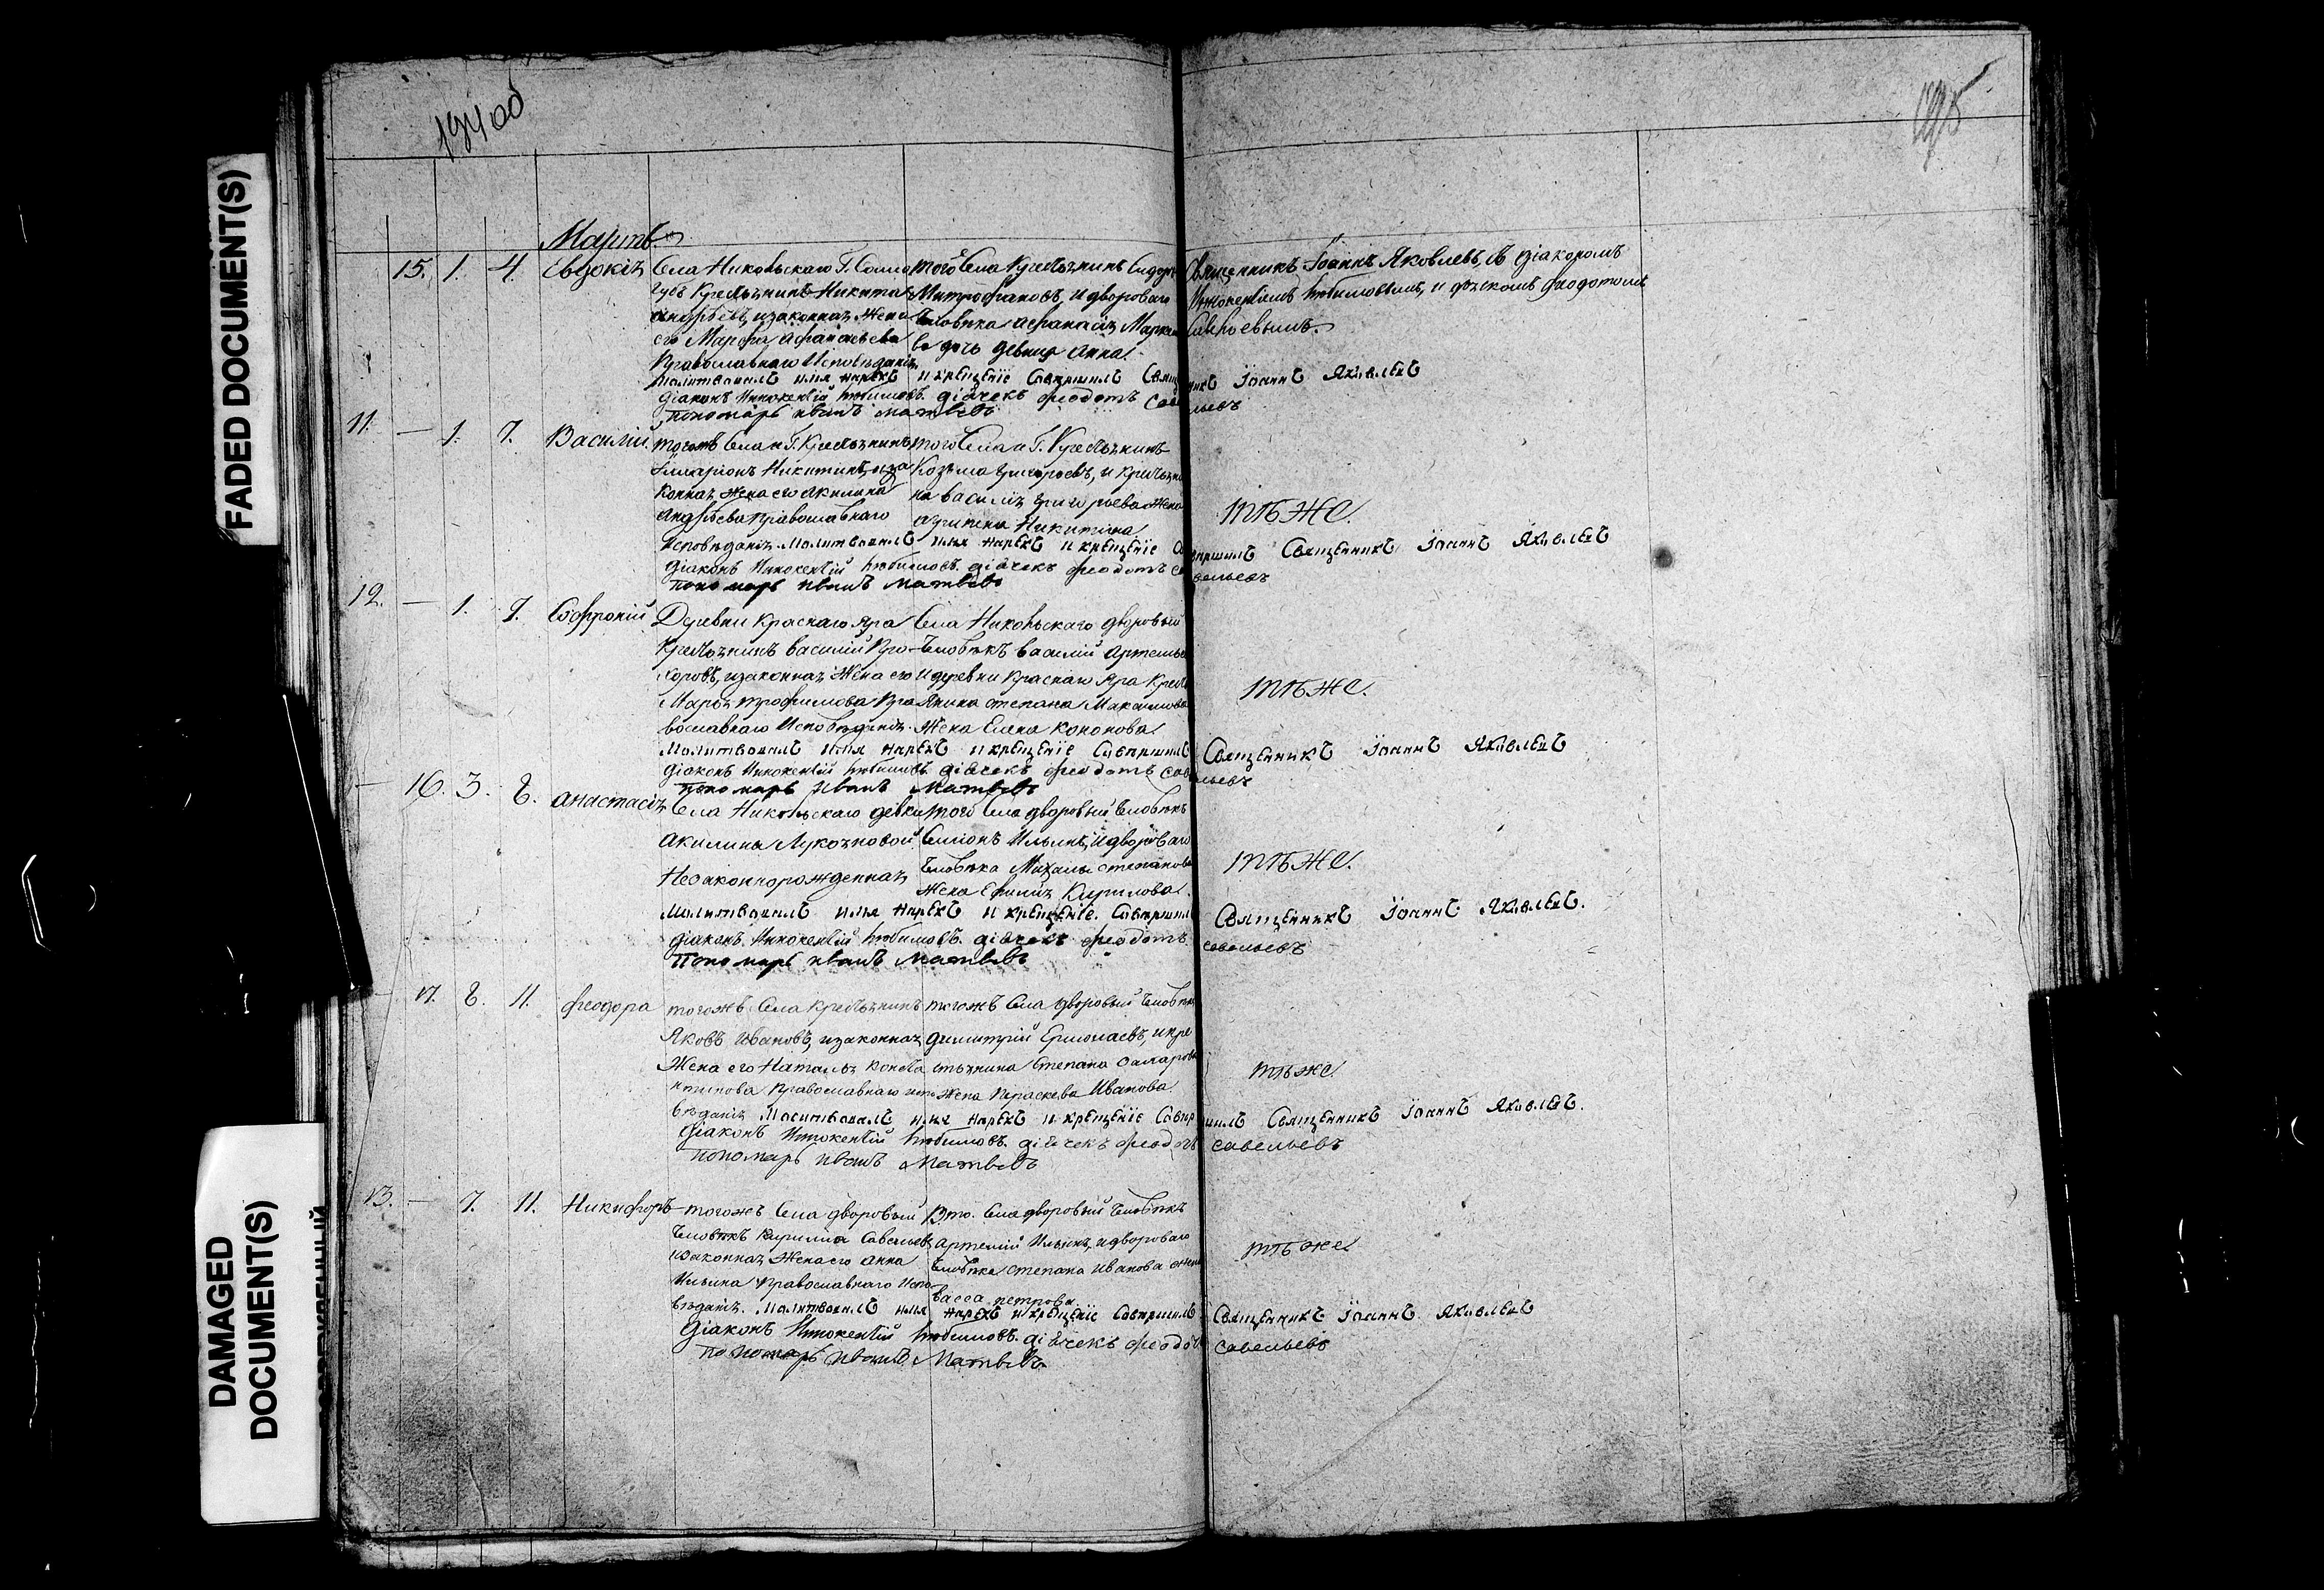 194 об
195
FADED DOCUMENT(S)
DAMAGED
DOCUMENT(S)
Мартъ
15. 1. 4. Евдокія
Села Никольскаго Г.
Крестьянинъ Никита
Андрѣевъ, изаконная Жена
его Марфа Афанасьева
Православнаго Исповѣданія
Того Села Крестьянинъ Сидоръ
Митрофановъ, и двороваго
Человѣка Афанасія
дочь Девица Анна.
Священникъ Іоаннъ Яковлевъ, съ діакономъ
Иннокентіемъ Любимовымъ, и дьячкомъ Феодотомъ
Савельевымъ.
Молитвовалъ имя нарекъ и крещеніе Совершилъ Священникъ Іоаннъ Яковлевъ
Діаконъ Иннокентій Любимовъ. дьячекъ феодотъ Савельевъ
Пономарь иванъ матвѣевъ
11. — 1. 7. Василій.
тогожъ Села и Г. Крестьянинъ
Илларіонъ Никитинъ, иза
конная Жена его Акилина
Андрѣева православнаго
исповѣданія.
того Села и Г. Крестьянинъ
Козьма Григорьевъ, и крестьяни
на Василія Григорьева Жена
Агрипена Никитина
тѣЖе.
Молитвовалъ имя нарекъ и крещеніе Совершилъ Священникъ Іоаннъ Яковлевъ
діаконъ Иннокентій Любимовъ. дьячекъ феодотъ савельевъ
пономарь иванъ матвѣевъ
12. — 1. 9. Софроній
Деревни Краснаго Яра
Крестьянинъ Василій Про
хоровъ, изаконная Жена его
Марья трофимова Пра
вославнаго Исповѣданія.
Села Никольскаго дворовый
Человѣкъ Василій Артемьевъ
и деревни Краснаго Яра Кресть
янина степана Максимова
Жена Елена Кононова
тѣЖе.
Молитвовалъ имя нарекъ и крещеніе Совершилъ Священникъ Іоаннъ Яковлевъ
діаконъ Иннокентій Любимовъ. дьячекъ феодотъ савельевъ
пономарь иванъ Матвѣевъ
16. 3. 8. Анастасія
Села Никольскаго девки
Акилины Лукояновой
Незаконнорожденная
того Села дворовый Человѣкъ
Семіонъ Ильинъ, и двороваго
Человѣка Михаилы степанова
Жена Ефимія Кирилова.
тѣЖе.
Молитвовалъ имя нарекъ и крещеніе. Совершилъ Священникъ Іоаннъ Яковлевъ.
діаконъ Иннокентій Любимовъ. дьячекъ феодотъ савельевъ
пономарь иванъ Матвѣевъ
17. 8. 11. феодора
тогожъ Села крестьянинъ
Яковъ Ивановъ, изаконная
Жена его Наталья Конста
нтинова православнаго испо
вѣданія
тогожъ Села дворовый Человѣкъ
Димитрій Ермолаевъ, и кре
стьянина Степана
Жена Параскева Иванова
тѣже
Молитвовалъ имя нарекъ и крещеніе Совершилъ Священникъ Іоаннъ Яковлевъ.
Діаконъ Иннокентій Любимовъ. дьячекъ феодотъ савельевъ
пономарь иванъ Матвѣевъ
13. — 9. 11. Никифоръ
тогожъ Села дворовый
Человѣкъ Кирилла Савельевъ
изаконная Жена его Анна
Ильина православнаго Испо
вѣданія.
Села дворовый Человѣкъ
Артемій Ильинъ, и двороваго
Человѣка степана Иванова жена
васса петрова.
тѣже
Молитвовалъ имя нарекъ и крещеніе Совершилъ Священникъ Іоаннъ Яковлевъ
Діаконъ Иннокентій Любимовъ. дьячекъ феодотъ Савельевъ
пономарь иванъ Матвѣевъ